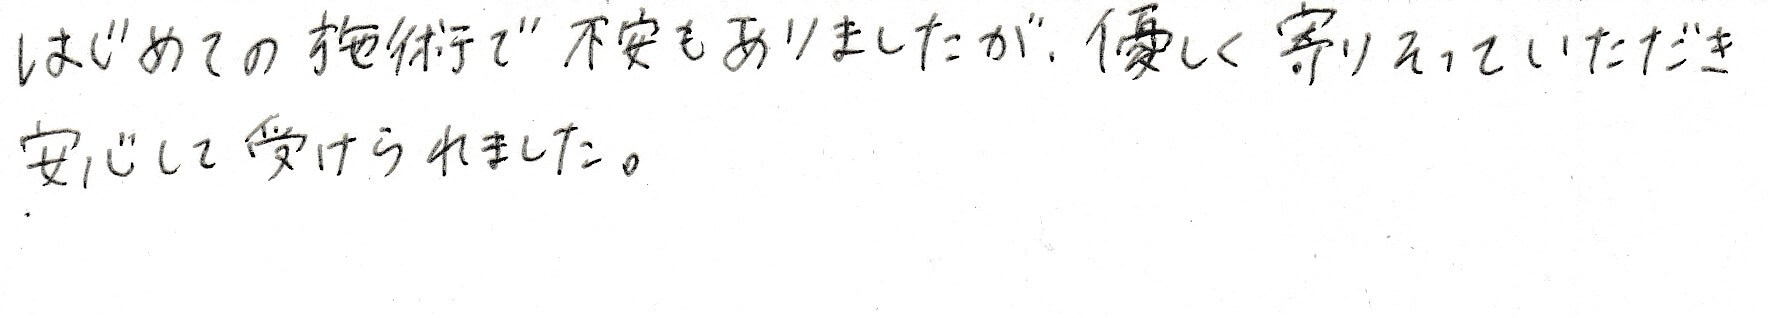 はじめての施術で不安もありましたが、優しく寄りそっていただき
安心して受けられました。